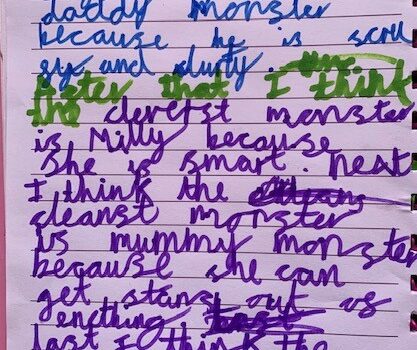 daddy monster
because he is scru
gy and durty. the
After that I think
the cleverst monster
is Milly because
she is smart. next
I think the
cleanst monster
is mummy monster
because she can
get stans out us
enething
last I think the